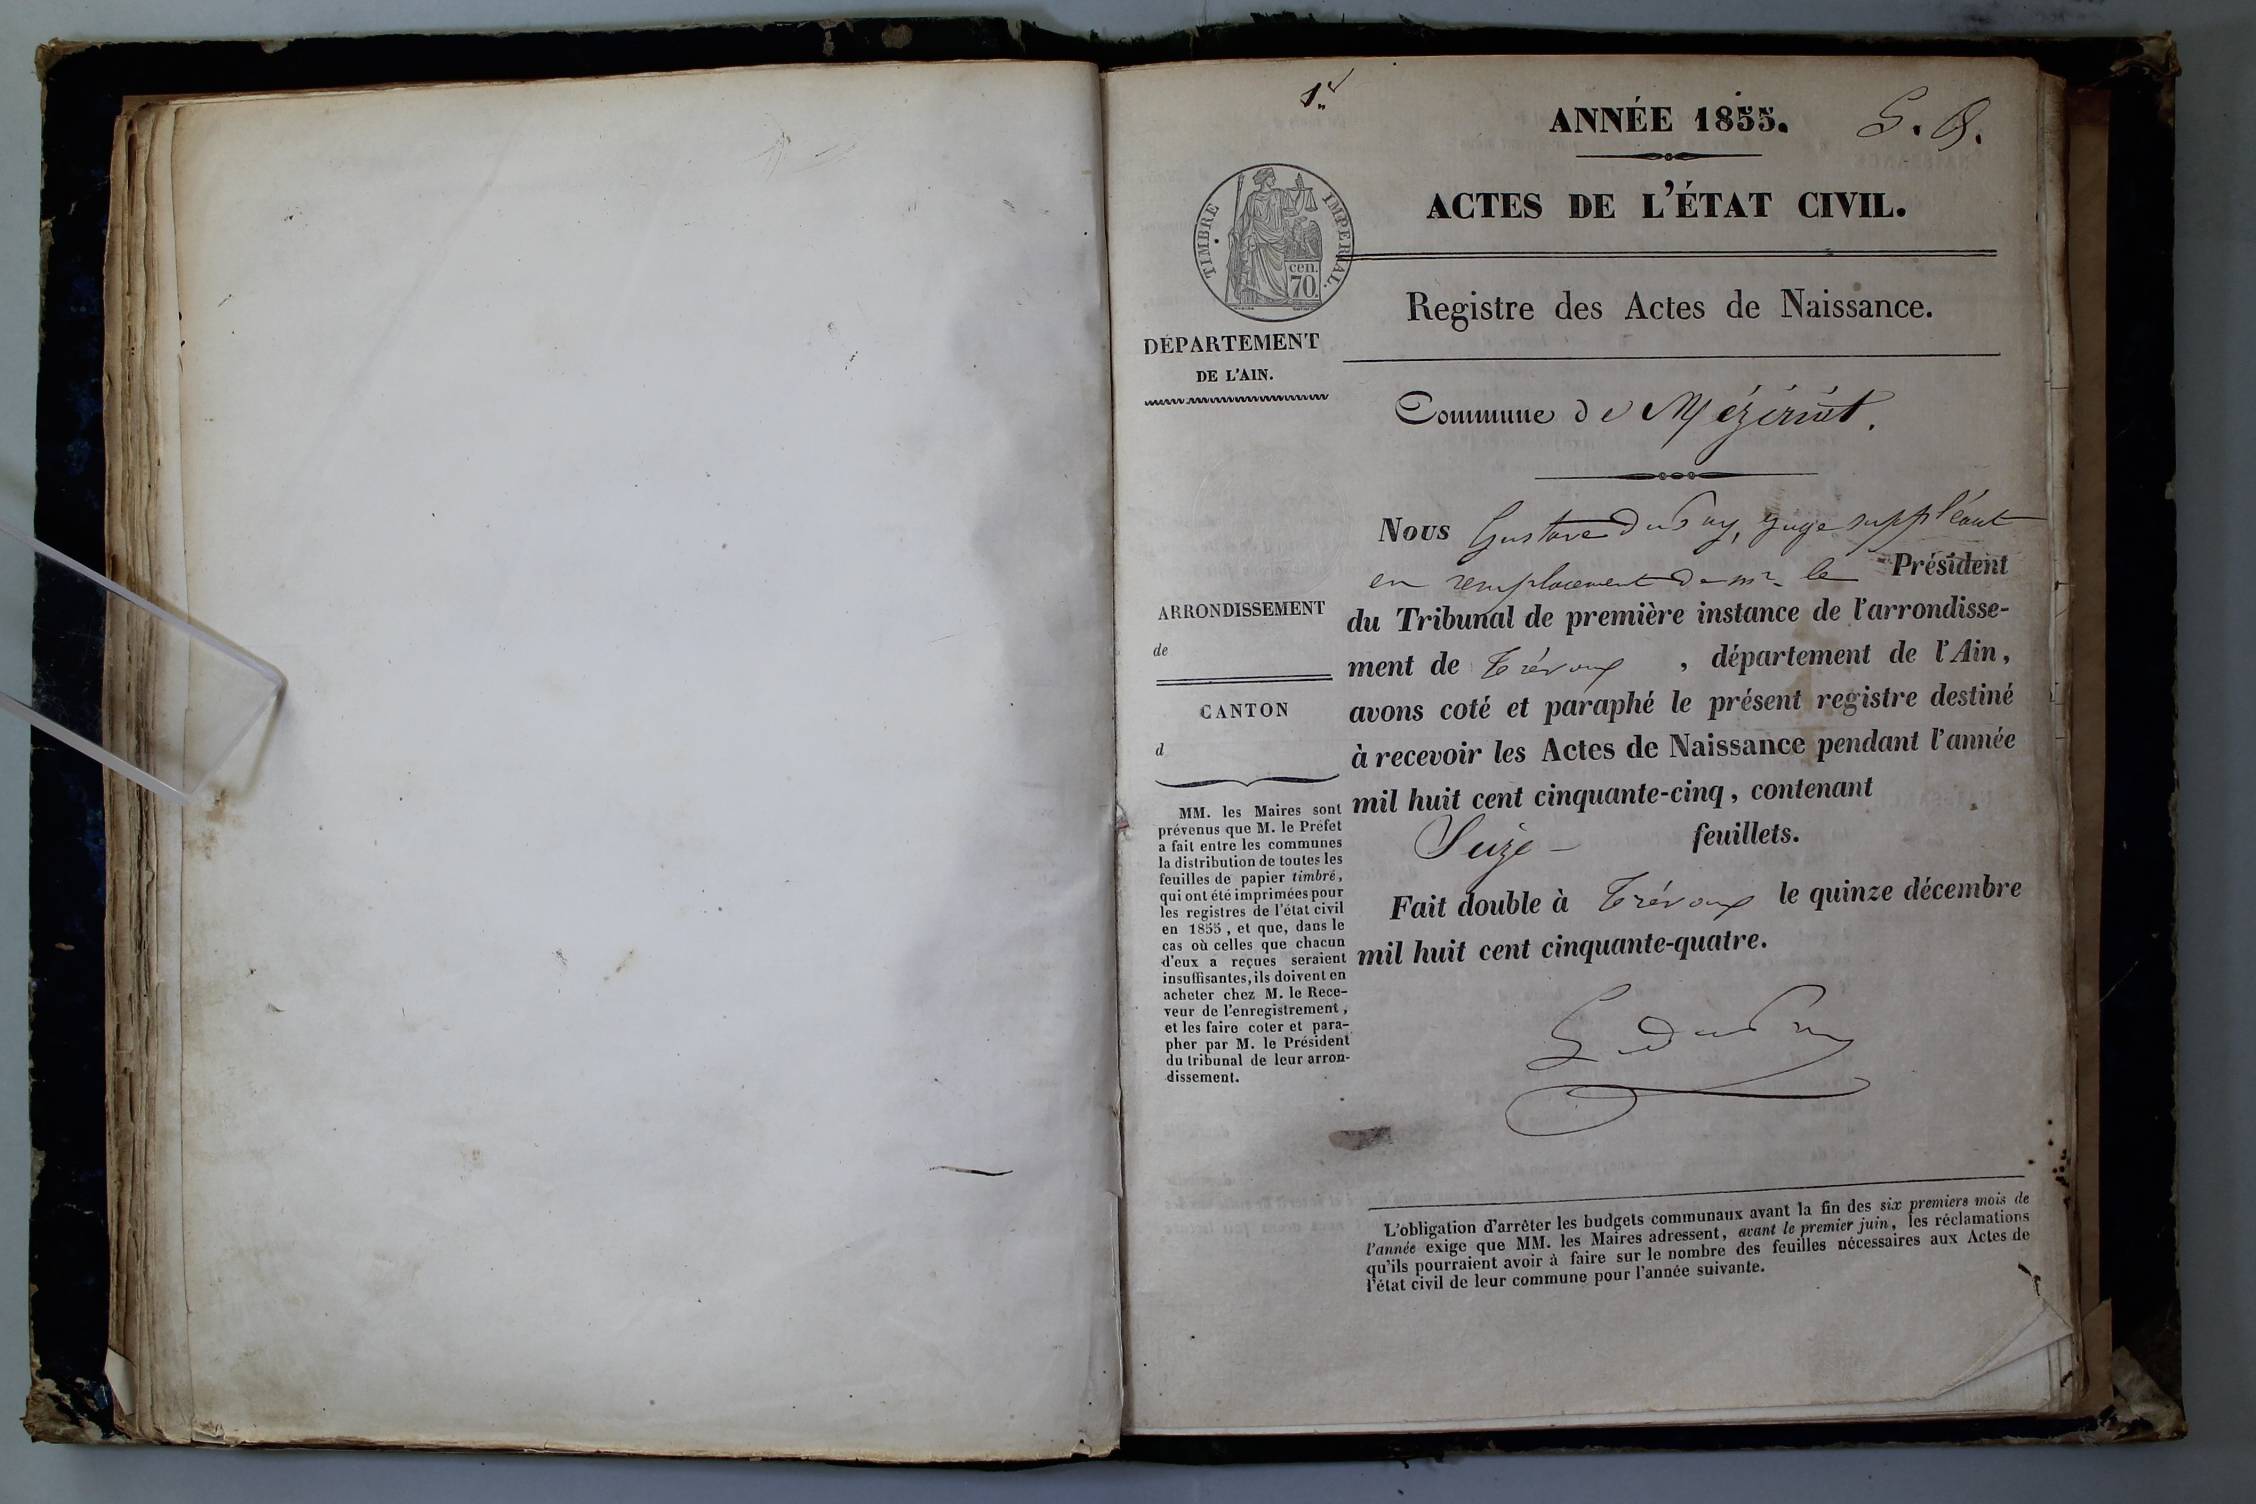 1er
ANNÉE 1855.
ACTES DE L'ÉTAT CIVIL.
TIMBRE IMPERIAL.
cen.
70.
Registre des Actes de Naissance.
DÉPARTEMENT
DE L'AIN.
Commune de Mézériat.
Nous Gustave DuPuy, juge suppléant
en remplacement de mr le Président
du Tribunal de première instance de l'arrondisse-
ment de Trévoux , département de l'Ain,
avons coté et paraphé le présent registre destiné
à recevoir les Actes de Naissance pendant l'année
mil huit cent cinquante-cinq, contenant
Seize — feuillets.
Fait double à Trévoux le quinze décembre
mil huit cent cinquante-quatre.
G DuPuy
ARRONDISSEMENT
de
CANTON
d
MM. les Maires sont
prévenus que M. le Préfet
a fait entre les communes
la distribution de toutes les
feuilles de papier timbré,
qui ont été imprimées pour
les registres de l'état civil
en 1855, et que, dans le
cas où celles que chacun
d'eux a reçues seraient
insuffisantes, ils doivent en
acheter chez M. le Rece-
veur de l'enregistrement,
et les faire coter et para-
pher par M. le Président
du tribunal de leur arron-
dissement.
L'obligation d'arrêter les budgets communaux avant la fin des six premiers mois de
l'année exige que MM. les Maires adressent, avant le premier juin, les réclamations
qu'ils pourraient avoir à faire sur le nombre des feuilles nécessaires aux Actes de
l'état civil de leur commune pour l'année suivante.